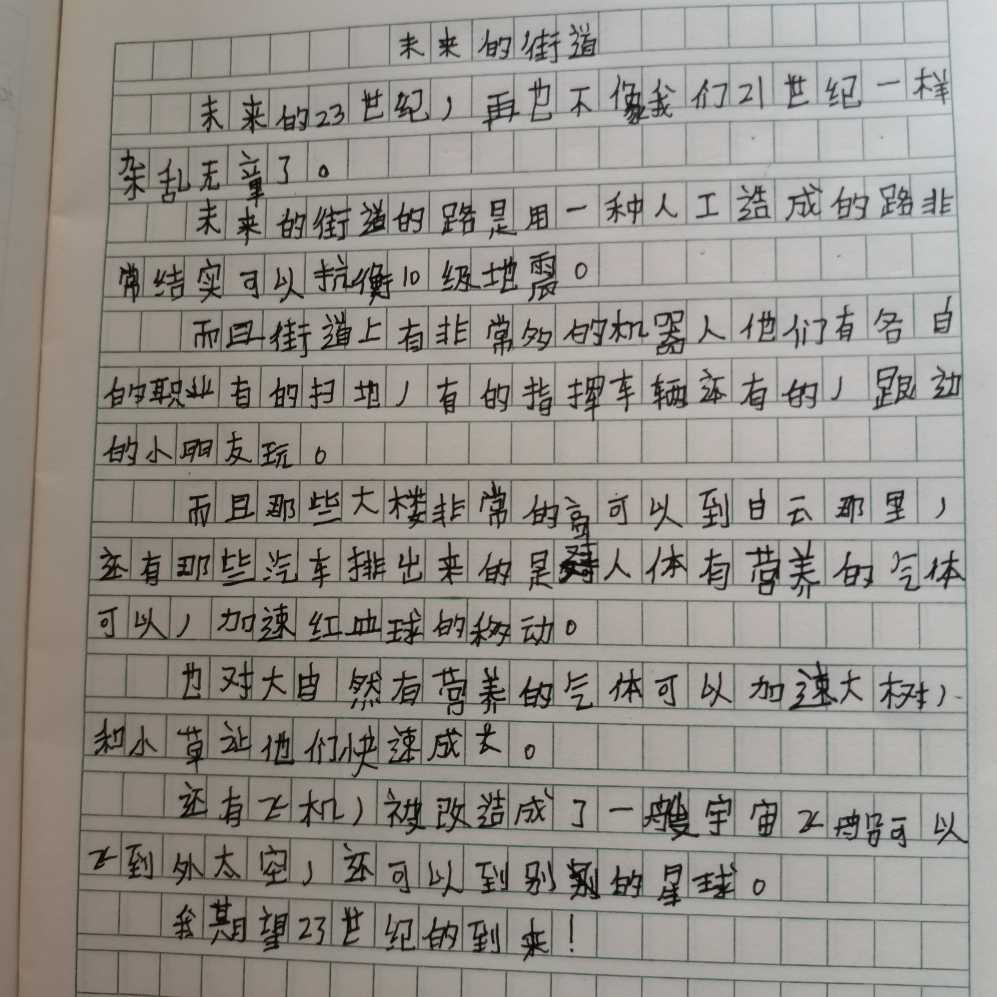 未来的街道
未来的23世纪,再也不像我们21世纪一样
杂乱无章了。
未来的街道的路是用一种人工造成的路非
常结实可以抗衡10级地震。
而且街道上有非常多的机器人他们有各自
的职业有的扫地,有的指挥车辆还有的,跟边
的小朋友玩。
而且那些大楼非常的高可以到白云那里,
还有那些汽车排出来的是对人体有营养的气体
可以,加速红血球的移动。
也对大自然有营养的气体可以加速大树,
和小草让他们快速成长。
还有飞机,被改造成了一艘宇宙飞船可以
飞到外太空,还可以到别的星球。
我期望23世纪的到来!